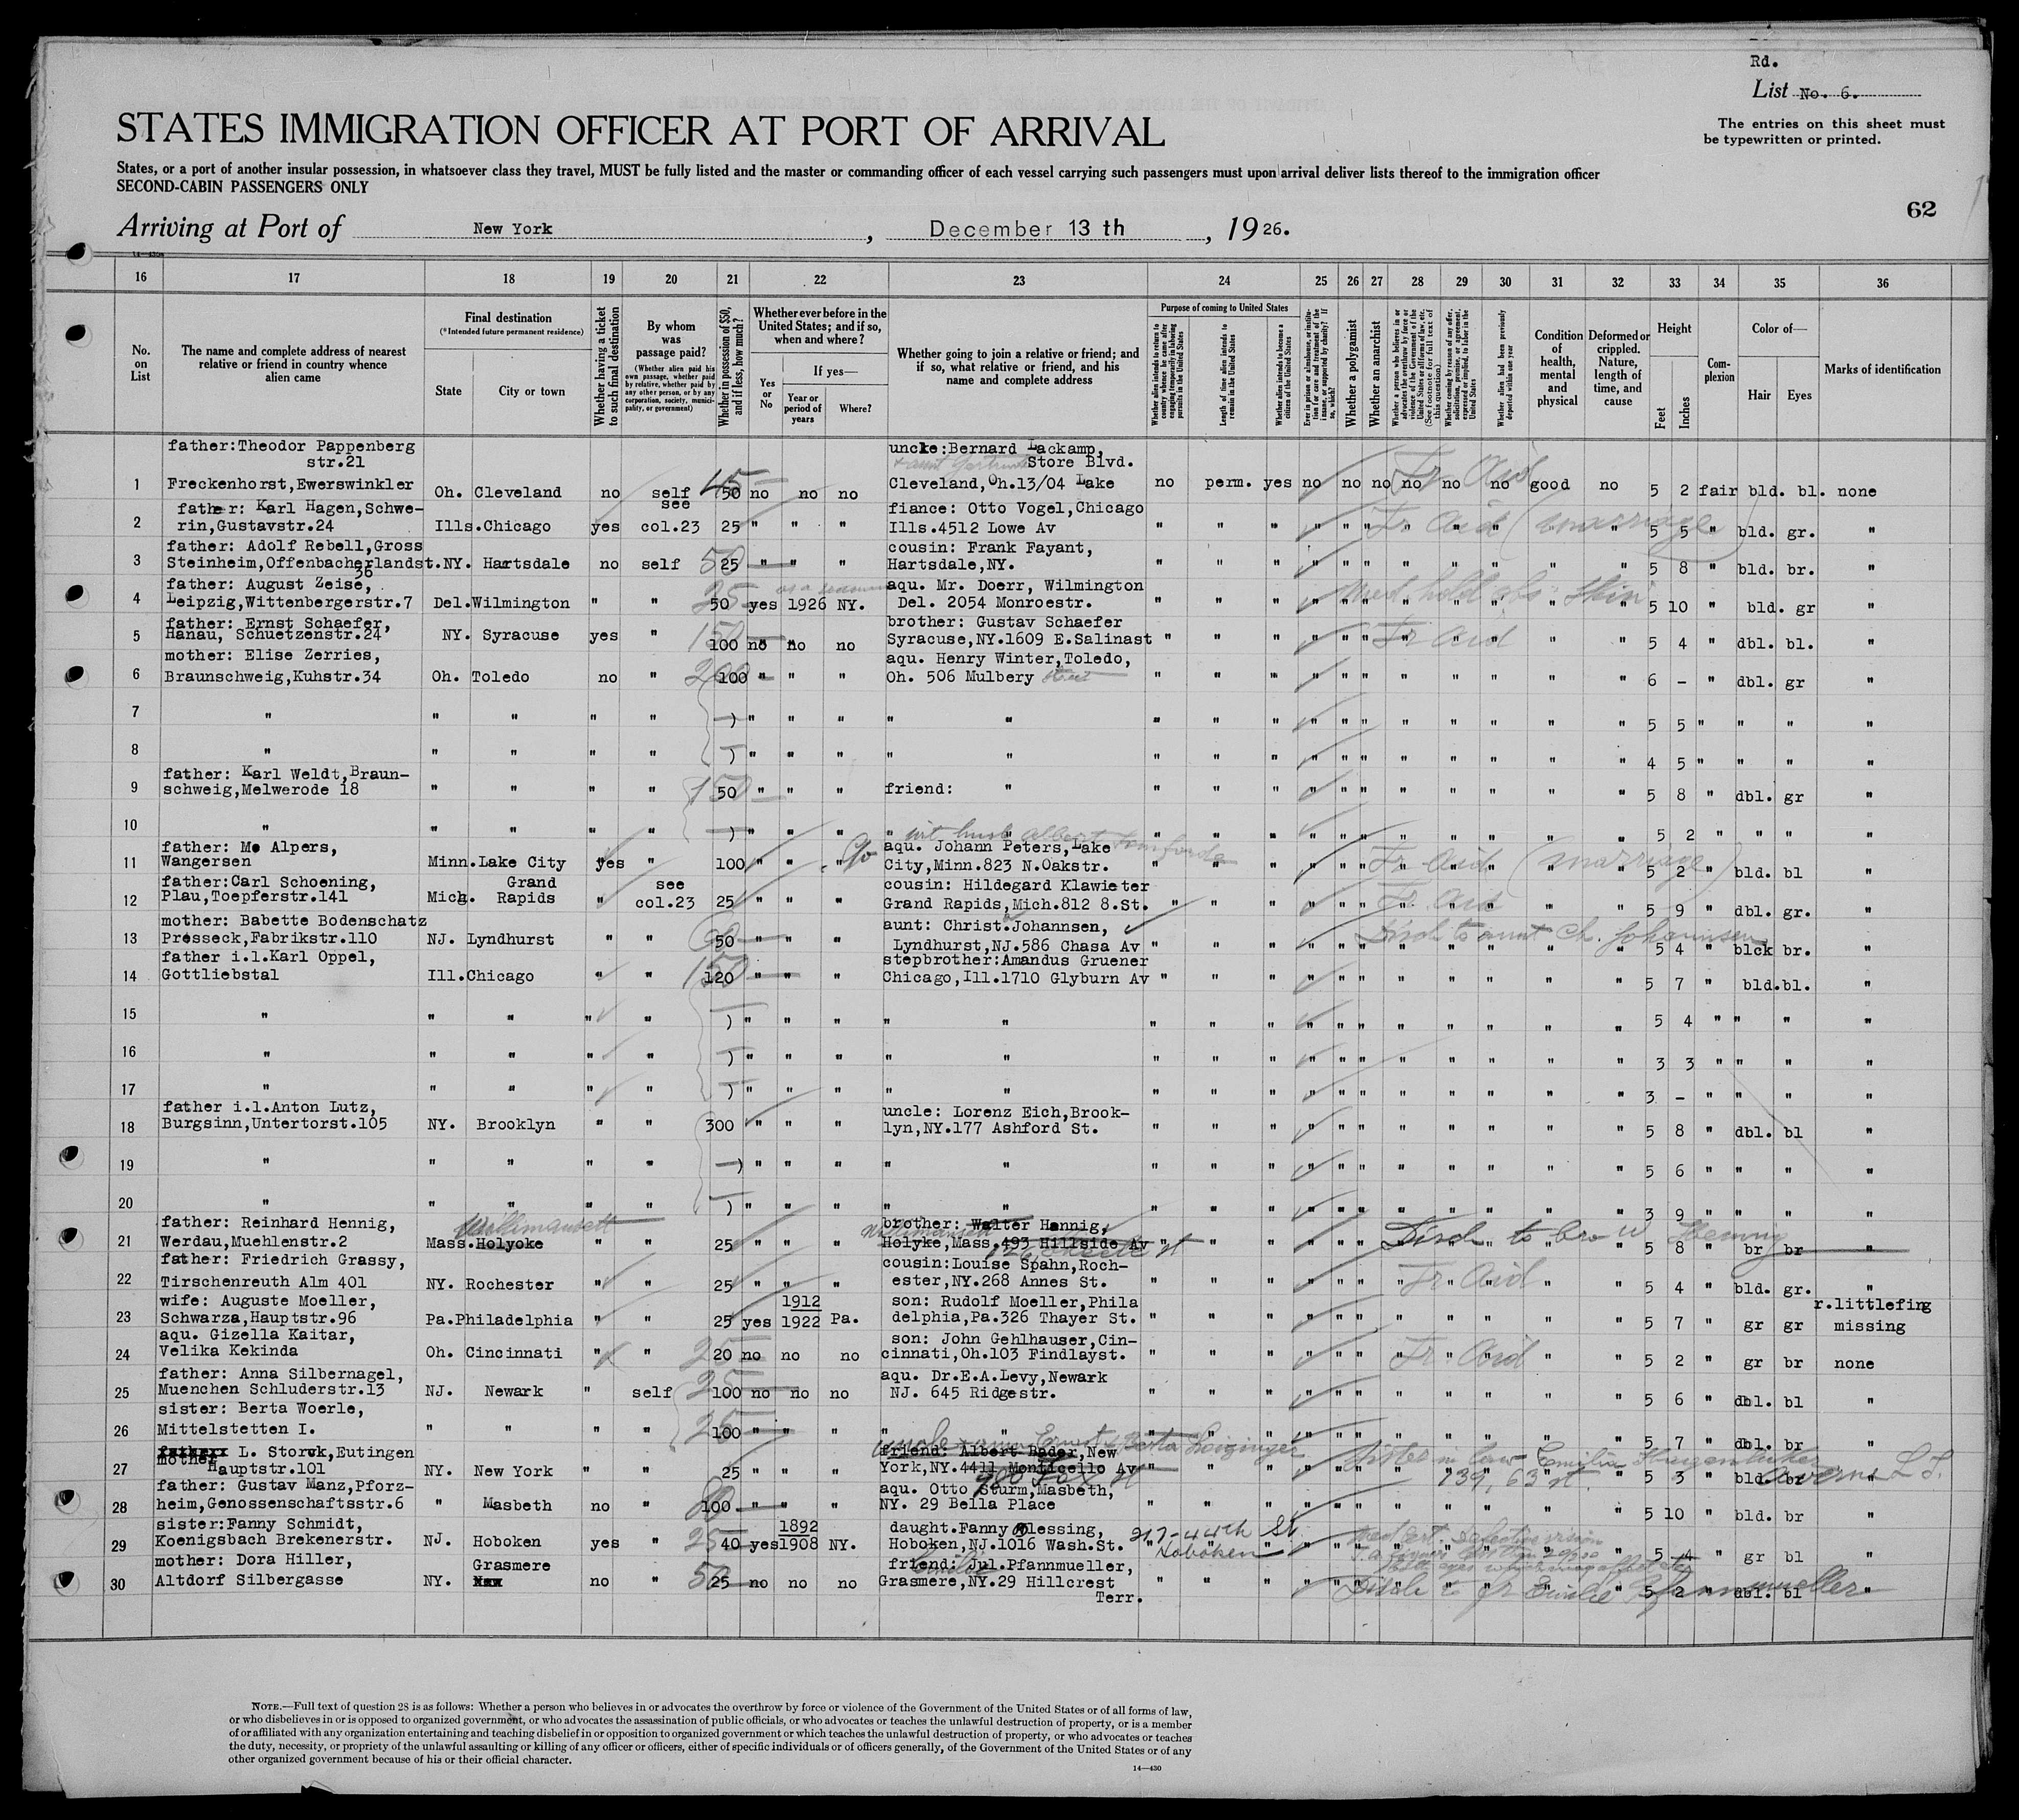 Rd.
List No. 6.
The entries on this sheet must
be typewritten or printed.
STATES IMMIGRATION OFFICER AT PORT OF ARRIVAL
States, or a port of another insular possession, in whatsoever class they travel, MUST be fully listed and the master or commanding officer of each vessel carrying such passengers must upon arrival deliver lists thereof to the immigration officer
SECOND-CABIN PASSENGERS ONLY
62
Arriving at Port of New York, December 13 th, 1926.
16 17 18 19 20 21 22 23 24 25 26 27 28 29 30 31 32 33 34 35 36
No. on List
The name and complete address of nearest relative or friend in country whence alien came
Final destination
(*Intended future permanent residence)
State
City or town
Whether having a ticket to such final destination
By whom was passage paid?
(Whether alien paid his own passage, whether paid by relative, whether paid by any other person, or by any corporation, society, municipality, or government)
Whether in possession of $50, and if less, how much?
Whether ever before in the United States; and if so, when and where?
Yes or No
If yes—
Year or period of years
Where?
Whether going to join a relative or friend; and if so, what relative or friend, and his name and complete address
Purpose of coming to United States
Whether alien intends to return to country whence he came after engaging temporarily in laboring pursuits in the United States
Length of time alien intends to remain in the United States
Whether alien intends to become a citizen of the United States
Whether a polygamist
Whether an anarchist
Whether alien had been previously deported within one year
Condition of health, mental and physical
Deformed or crippled. Nature, length of time, and cause
Height
Feet
Inches
Complexion
Color of—
Hair
Eyes
Marks of identification
father:Theodor Pappenberg uncle:Bernard Lackamp,
str.21 Store Blvd.
1 Freckenhorst,Ewerswinkler Oh. Cleveland no self 45 50 no no no Cleveland,Oh.13/04 Lake no perm. yes no no no no no no good no 5 2 fair bld. bl. none
Fr Aid
father: Karl Hagen,Schwe- see fiance: Otto Vogel,Chicago
2 rin,Gustavstr.24 Ills.Chicago yes col.23 25 " " " Ills.4512 Lowe Av " " " " " " " " " " " 5 5 " bld. gr. "
Fr Aid (marriage)
father: Adolf Rebell,Gross cousin: Frank Fayant,
3 Steinheim,Offenbacherlandst. NY. Hartsdale no self 50 25 " " " Hartsdale,NY. " " " " " " " " " " " 5 8 " bld. br. "
36
father: August Zeise, as a seaman aqu. Mr. Doerr, Wilmington
4 Leipzig,Wittenbergerstr.7 Del.Wilmington " " 25 50 yes 1926 NY. Del. 2054 Monroestr. " " " " " " " " " " " 5 10 " bld. gr "
father: Ernst Schaefer, brother: Gustav Schaefer
5 Hanau, Schuetzenstr.24 NY. Syracuse yes " 150 100 no no no Syracuse,NY.1609 E.Salinast " " " " " " " " " " " 5 4 " dbl. bl. "
Fr Aid
mother: Elise Zerries, aqu. Henry Winter,Toledo,
6 Braunschweig,Kuhstr.34 Oh. Toledo no " 200 100 " " " Oh. 506 Mulbery Street " " " " " " " " " " " 6 - " dbl. gr "
7 " " " " " —) " " " " " " " " " " " " " " " " " 5 5 " " " "
8 " " " " " —) " " " " " " " " " " " " " " " " " 4 5 " " " "
father: Karl Weldt,Braun-
9 schweig,Melwerode 18 " " " " 150 50 " " " friend: " " " " " " " " " " " " " 5 8 " dbl. gr "
10 " " " " " —) " " " " " " " " " " " " " " " " " 5 2 " " " "
father: M. Alpers, aqu. Johann Peters,Lake
11 Wangersen Minn.Lake City yes " 100 " " " c/o City,Minn.823 N.Oakstr. " " " " " " " " " " " 5 2 " bld. bl "
Fr Aid (marriage)
father:Carl Schoening, Grand see cousin: Hildegard Klawieter
12 Plau,Toepferstr.141 Mich. Rapids " col.23 25 " " " Grand Rapids,Mich.812 8.St. " " " " " " " " " " " 5 9 " dbl. gr. "
Fr. Aid
mother: Babette Bodenschatz aunt: Christ.Johannsen,
13 Presseck,Fabrikstr.110 NJ. Lyndhurst " " 60 50 " " " Lyndhurst,NJ.586 Chasa Av " " " " " " " " " " " 5 4 " blck br. "
Disch to aunt Ch. Johannsen
father i.l.Karl Oppel, stepbrother:Amandus Gruener
14 Gottliebstal Ill.Chicago " " 150 120 " " " Chicago,Ill.1710 Glyburn Av " " " " " " " " " " " 5 7 " bld.bl. "
15 " " " " " ) " " " " " " " " " " " " " " " " " 5 4 " " " "
16 " " " " " —) " " " " " " " " " " " " " " " " " 3 3 " " " "
17 " " " " " —) " " " " " " " " " " " " " " " " " 3 - " " " "
father i.l.Anton Lutz, uncle: Lorenz Eich,Brook-
18 Burgsinn,Untertorst.105 NY. Brooklyn " " 300 " " " lyn,NY.177 Ashford St. " " " " " " " " " " " 5 8 " dbl. bl "
19 " " " " " —) " " " " " " " " " " " " " " " " " 5 6 " " " "
20 " " " " " —) " " " " " " " " " " " " " " " " " 3 9 " " " "
father: Reinhard Hennig, Willimansett brother: Walter Hennig,
21 Werdau,Muehlenstr.2 Mass.Holyoke " " 25 " " " Holyke,Mass,493 Hillside Av " " " " " " " " " " " 5 8 " br br "
Disch to bro W Hennig
father: Friedrich Grassy, cousin:Louise Spahn,Roch-
22 Tirschenreuth Alm 401 NY. Rochester " " 25 " " " ester,NY.268 Annes St. " " " " " " " " " " " 5 4 " bld. gr. "
Fr Aid
wife: Auguste Moeller, 1912 son: Rudolf Moeller,Phila r.littlefing
23 Schwarza,Hauptstr.96 Pa.Philadelphia " " 25 yes 1922 Pa. delphia,Pa.326 Thayer St. " " " " " " " " " " " 5 7 " gr gr missing
aqu. Gizella Kaitar, son: John Gehlhauser,Cin-
24 Velika Kekinda Oh. Cincinnati " " 25 20 no no no cinnati,Oh.103 Findlayst. " " " " " " " " " " " 5 2 " gr br none
Fr. Aid
father: Anna Silbernagel, aqu. Dr.E.A.Levy,Newark
25 Muenchen Schluderstr.13 NJ. Newark " self 25 100 no no no NJ. 645 Ridgestr. " " " " " " " " " " " 5 6 " dbl. bl "
sister: Berta Woerle,
26 Mittelstetten I. " " " " 25 100 " " " " " " " " " " " " " " " " 5 7 " dbl. br "
mother L. Storck,Eutingen friend: Albert Bader,New
27 Hauptstr.101 NY. New York " " 25 " " " York,NY.4411 Monticello Av " " " " " " " " " " " 5 3 " bld. br "
139, 63 st.
father: Gustav Manz,Pforz- aqu. Otto Sturm,Masbeth,
28 heim,Genossenschaftsstr.6 " Masbeth no " 100 " " " NY. 29 Bella Place " " " " " " " " " " " 5 10 " bld. br "
sister:Fanny Schmidt, 1892 daught.Fanny Blessing, 217-44th St
29 Koenigsbach Brekenerstr. NJ. Hoboken yes " 25 40 yes 1908 NY. Hoboken,NJ.1016 Wash.St. Hoboken " " " 5 4 " gr bl "
mother: Dora Hiller, Grasmere friend: Jul.Pfannmueller,
30 Altdorf Silbergasse NY. no " 50 25 no no no Grasmere,NY.29 Hillcrest " " " " " " " " " " " 5 2 " dbl. bl "
Terr.
Disch to fr Emilie Pfannmueller
NOTE.—Full text of question 28 is as follows: Whether a person who believes in or advocates the overthrow by force or violence of the Government of the United States or of all forms of law,
or who disbelieves in or is opposed to organized government, or who advocates the assassination of public officials, or who advocates or teaches the unlawful destruction of property, or is a member
of or affiliated with any organization entertaining and teaching disbelief in or opposition to organized government or which teaches the unlawful destruction of property, or who advocates or teaches
the duty, necessity, or propriety of the unlawful assaulting or killing of any officer or officers, either of specific individuals or of officers generally, of the Government of the United States or of any
other organized government because of his or their official character.
14—430